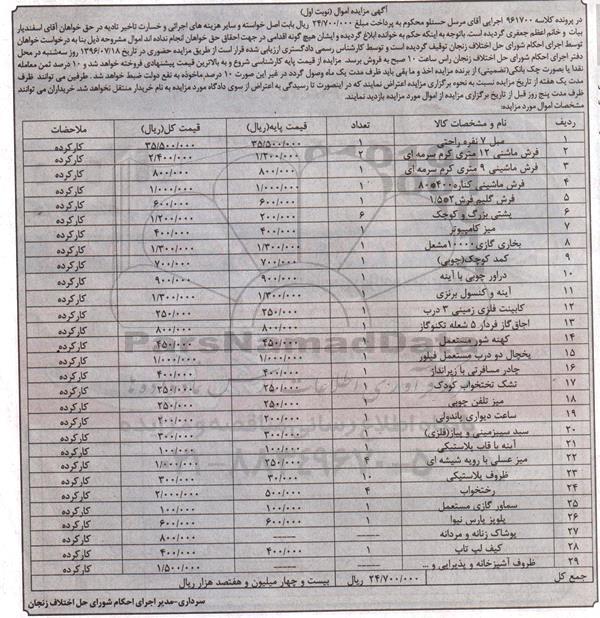 آگهی مزایده اموال (نوبت اول)
در پرونده کلاسه ۹۶۱۷۰۰ اجرایی آقای مرسل حسنلو محکوم به پرداخت مبلغ ۲۴/۷۰۰/۰۰۰ ریال بابت اصل خواسته و سایر هزینه های اجرائی و خسارت تاخیر تادیه در حق خواهان آقای اسفندیار
بیات و خانم اعظم جعفری گردیده است. باتوجه به اینکه حکم به خوانده ابلاغ گردیده و ایشان هیچ گونه اقدامی در جهت احقاق حق خواهان انجام نداده اند اموال مشروحه ذیل بنا به درخواست خواهان
توسط اجرای احکام شورای حل اختلاف زنجان توقیف گردیده است و توسط کارشناس رسمی دادگستری ارزیابی شده قرار است از طریق مزایده حضوری در تاریخ ۱۳۹۶/۰۷/۱۸ روز سه‌شنبه در محل
دفتر اجرای احکام شورای حل اختلاف زنجان راس ساعت ۱۰ صبح به فروش برسد. مزایده از قیمت پایه کارشناسی شروع و به بالاترین قیمت پیشنهادی فروخته خواهد شد و ۱۰ درصد ثمن معامله
نقدا یا بصورت چک بانکی(تضمینی) از برنده مزایده اخذ و ما بقی باید ظرف مدت یک ماه وصول گردد در غیر این صورت ۱۰ درصد ماخوذه به نفع دولت ضبط خواهد شد. طرفین می توانند ظرف
مدت یک هفته از تاریخ مزایده نسبت به نحوه برگزاری مزایده اعتراض نمایند که در اینصورت تا رسیدگی به اعتراض از سوی دادگاه مورد مزایده به نام خریدار منتقل نخواهد شد. خریداران می توانند
ظرف مدت پنج روز قبل از تاریخ برگزاری مزایده از اموال مورد مزایده بازدید نمایند.
مشخصات اموال مورد مزایده:
ردیف نام و مشخصات کالا تعداد قیمت پایه(ریال) قیمت کل(ریال) ملاحضات
۱ مبل ۷ نفره راحتی ۱ ۳۵/۵۰۰/۰۰۰ ۳۵/۵۰۰/۰۰۰ کارکرده
۲ فرش ماشینی ۱۲ متری کرم سرمه ای ۲ ۱/۲۰۰/۰۰۰ ۲/۴۰۰/۰۰۰ کارکرده
۳ فرش ماشینی ۹ متری کرم سرمه ای ۱ ۸۰۰/۰۰۰ ۸۰۰/۰۰۰ کارکرده
۴ فرش ماشینی کناره ۱ ۱/۰۰۰/۰۰۰ ۱/۰۰۰/۰۰۰ کارکرده
۵ فرش گلیم فرش ۱ ۶۰۰/۰۰۰ ۶۰۰/۰۰۰ کارکرده
۶ پشتی بزرگ و کوچک ۶ ۲۰۰/۰۰۰ ۱/۲۰۰/۰۰۰ کارکرده
۷ میز کامپیوتر ۱ ۴۰۰/۰۰۰ ۴۰۰/۰۰۰ کارکرده
۸ بخاری گازی ۱۰۰۰۰مشعل ۱ ۱/۳۰۰/۰۰۰ ۱/۳۰۰/۰۰۰ کارکرده
۹ کمد کوچک(چوبی) ۱ ۷۰۰/۰۰۰ ۷۰۰/۰۰۰ کارکرده
۱۰ دراور چوبی با آینه ۱ ۹۰۰/۰۰۰ ۹۰۰/۰۰۰ کارکرده
۱۱ آینه و کنسول برنزی ۱ ۱/۳۰۰/۰۰۰ ۱/۳۰۰/۰۰۰ کارکرده
۱۲ کابینت فلزی زمینی ۳ درب ۱ ۲۵۰/۰۰۰ ۲۵۰/۰۰۰ کارکرده
۱۳ اجاق گاز فردار ۵ شعله تکنوگاز ۱ ۸۰۰/۰۰۰ ۸۰۰/۰۰۰ کارکرده
۱۴ کهنه شور مستعمل ۱ ۴۵۰/۰۰۰ ۴۵۰/۰۰۰ کارکرده
۱۵ یخچال دو درب مستعمل فیلور ۱ ۱/۰۰۰/۰۰۰ ۱/۰۰۰/۰۰۰ کارکرده
۱۶ چادر مسافرتی با زیرانداز ۱ ۴۰۰/۰۰۰ ۴۰۰/۰۰۰ کارکرده
۱۷ تشک تختخواب کودک ۱ ۲۵۰/۰۰۰ ۲۵۰/۰۰۰ کارکرده
۱۸ میز تلفن چوبی ۱ ۲۵۰/۰۰۰ ۲۵۰/۰۰۰ کارکرده
۱۹ ساعت دیواری پاندولی ۱ ۲۰۰/۰۰۰ ۲۰۰/۰۰۰ کارکرده
۲۰ سبد سیبزمینی و پیاز(فلزی) ۱ ۳۰۰/۰۰۰ ۳۰۰/۰۰۰ کارکرده
۲۱ آینه با قاب پلاستیکی ۱ ۱۰۰/۰۰۰ ۱۰۰/۰۰۰ کارکرده
۲۲ میز عسلی با رویه شیشه ای ۴ ۲۵۰/۰۰۰ ۱/۰۰۰/۰۰۰ کارکرده
۲۳ ظروف پلاستیکی ۱۰ ۳۰/۰۰۰ ۳۰۰/۰۰۰ کارکرده
۲۴ رختخواب ۴ ۵۰۰/۰۰۰ ۲/۰۰۰/۰۰۰ کارکرده
۲۵ سماور گازی مستعمل ۱ ۱۰۰/۰۰۰ ۱۰۰/۰۰۰ کارکرده
۲۶ پلوپز پارس نیوا ۱ ۶۰۰/۰۰۰ ۶۰۰/۰۰۰ کارکرده
۲۷ پوشاک زنانه و مردانه ---- ---- ۸۰۰/۰۰۰ کارکرده
۲۸ کیف لپ تاپ ۱ ۴۰۰/۰۰۰ ۴۰۰/۰۰۰ کارکرده
۲۹ ظروف آشپزخانه و پذیرایی و ... ---- ---- ۱/۵۰۰/۰۰۰ کارکرده
جمع کل ۲۴/۷۰۰/۰۰۰ ریال بیست و چهار میلیون و هفتصد هزار ریال
سرداری-مدیر اجرای احکام شورای حل اختلاف زنجان